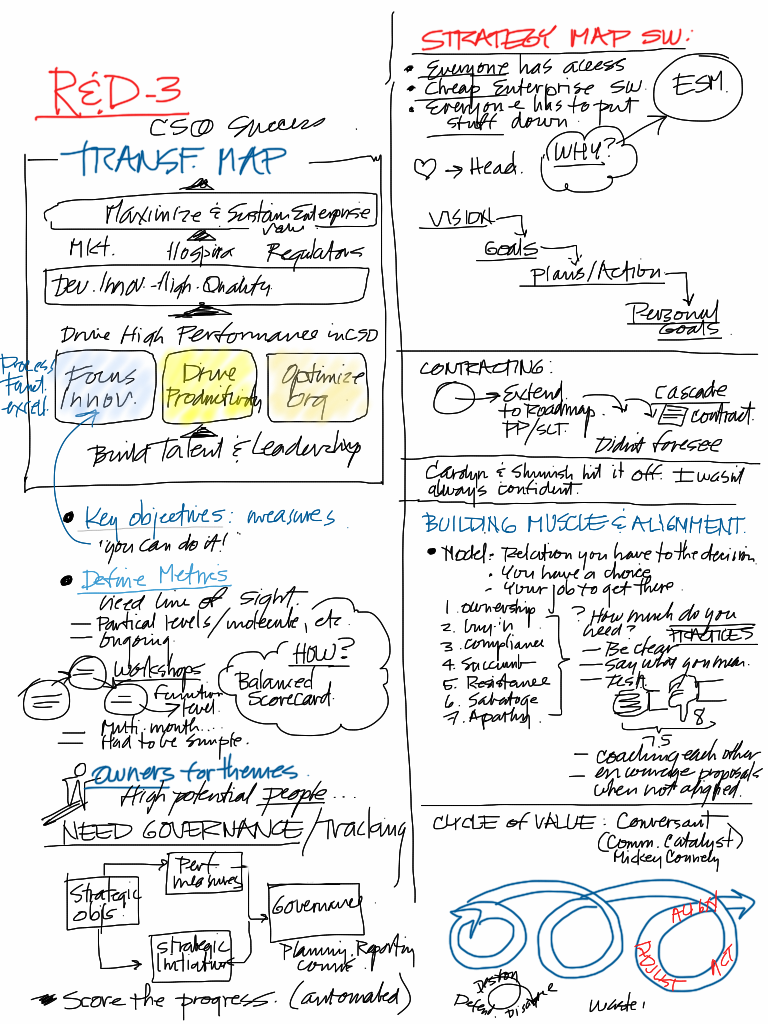 R&D-3
CSO Success
TRANSF. MAP
Maximize & Sustain Enterprise
Value
Mkt. Hospira Regulators
Dev. Innov. - High-Quality
Drive High Performance in CSO
Process
Funct.
excell.
Focus
Innov.
Drive
Productivity
Optimize
Org
Build Talent & Leadership
Key objectives: measures
"you can do it!"
Define Metrics
Need line of sight.
Partical levels/molecule, etc
Ongoing
Workshops
Function
level.
HOW?
Balanced
Scorecard.
Multi. month...
Had to be simple.
Owners for themes
High potential people...
NEED GOVERNANCE/Tracking
Strategic
objs.
Perf.
measures
Strategic
Initiatives
Governance
Planning. Reporting
comms
Score the progress. (automated)
STRATEGY MAP SW:
Everyone has access
Cheap Enterprise SW.
Everyone has to put
stuff down.
ESM.
WHY?
→ Head.
VISION
Goals
Plans/Action
Personal
Goals.
CONTRACTING:
→ Extend
to Roadmap.
PP/SLT.
Cascade
contract.
Didn't foresee
Carolyn & hit it off. I wasn't
always confident.
BUILDING MUSCLE & ALIGNMENT.
Model: Relation you have to the decision
· You have a choice
· Your job to get there
1. ownership
2. buy in
3. compliance
4. Succumb
5. Resistance
6. Sabatoge
7. Apathy
? How much do you
need?
PRACTICES
— Be clear
— Say what you mean.
8
75
— coaching each other
— encourage proposals
when not aligned.
CYCLE OF VALUE: Conversant
(Comm. Catalyst)
Mickey Connely
ALIGN
ACT
ADJUST
Defend
Waste!